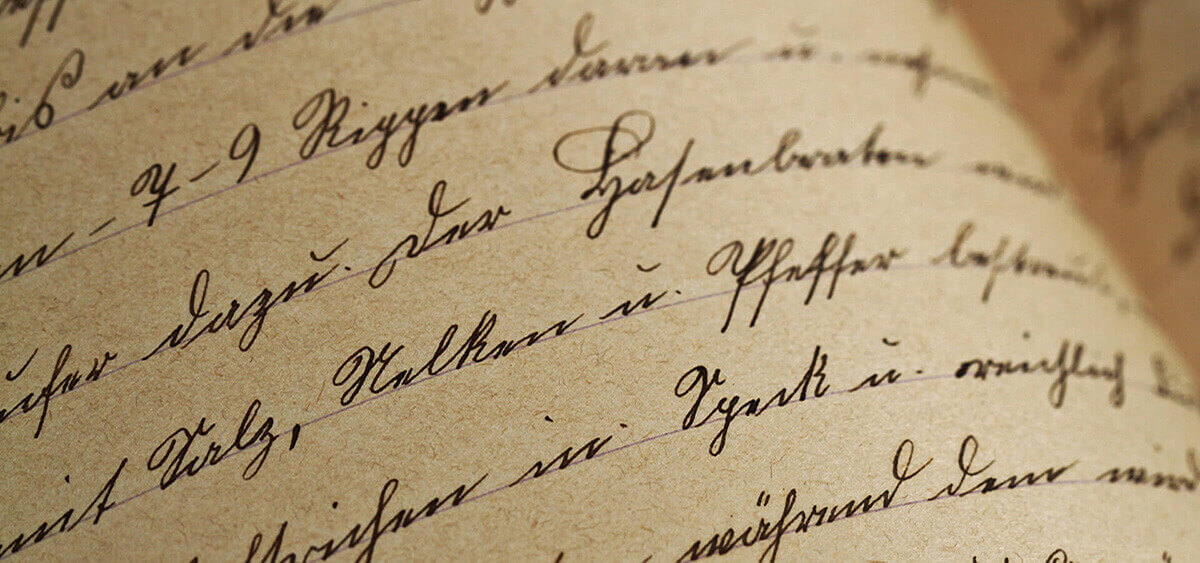 bis an die
7-9 Rippen daran u.
dazu. Der Hasenbraten
mit Salz, Nelken u. Pfeffer
in Speck u. reichlich
während dem wird